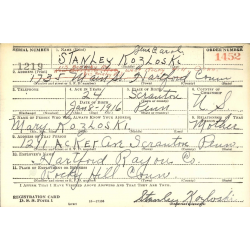 SERIAL NUMBER
1. NAME (Print)
ORDER NUMBER
1219
STANLEY KOZLOSKI
1452
2. ADDRESS (Print)
Hartford Conn
3. TELEPHONE
4. AGE IN YEARS
24
5. PLACE OF BIRTH
Scranton
6. COUNTRY OF CITIZENSHIP
DATE OF BIRTH
Jan 8 - 1916
Penn
U S
7. NAME OF PERSON WHO WILL ALWAYS KNOW YOUR ADDRESS
8. RELATIONSHIP OF THAT PERSON
Mary Kozloski
Mother
9. ADDRESS OF THAT PERSON
Scranton Penn
10. EMPLOYER'S NAME
Hartford Rayon Co.
11. PLACE OF EMPLOYMENT OR BUSINESS
Rocky Hill Conn
I AFFIRM THAT I HAVE VERIFIED ABOVE ANSWERS AND THAT THEY ARE TRUE.
REGISTRATION CARD
D. S. S. Form 1
Stanley Kozloski